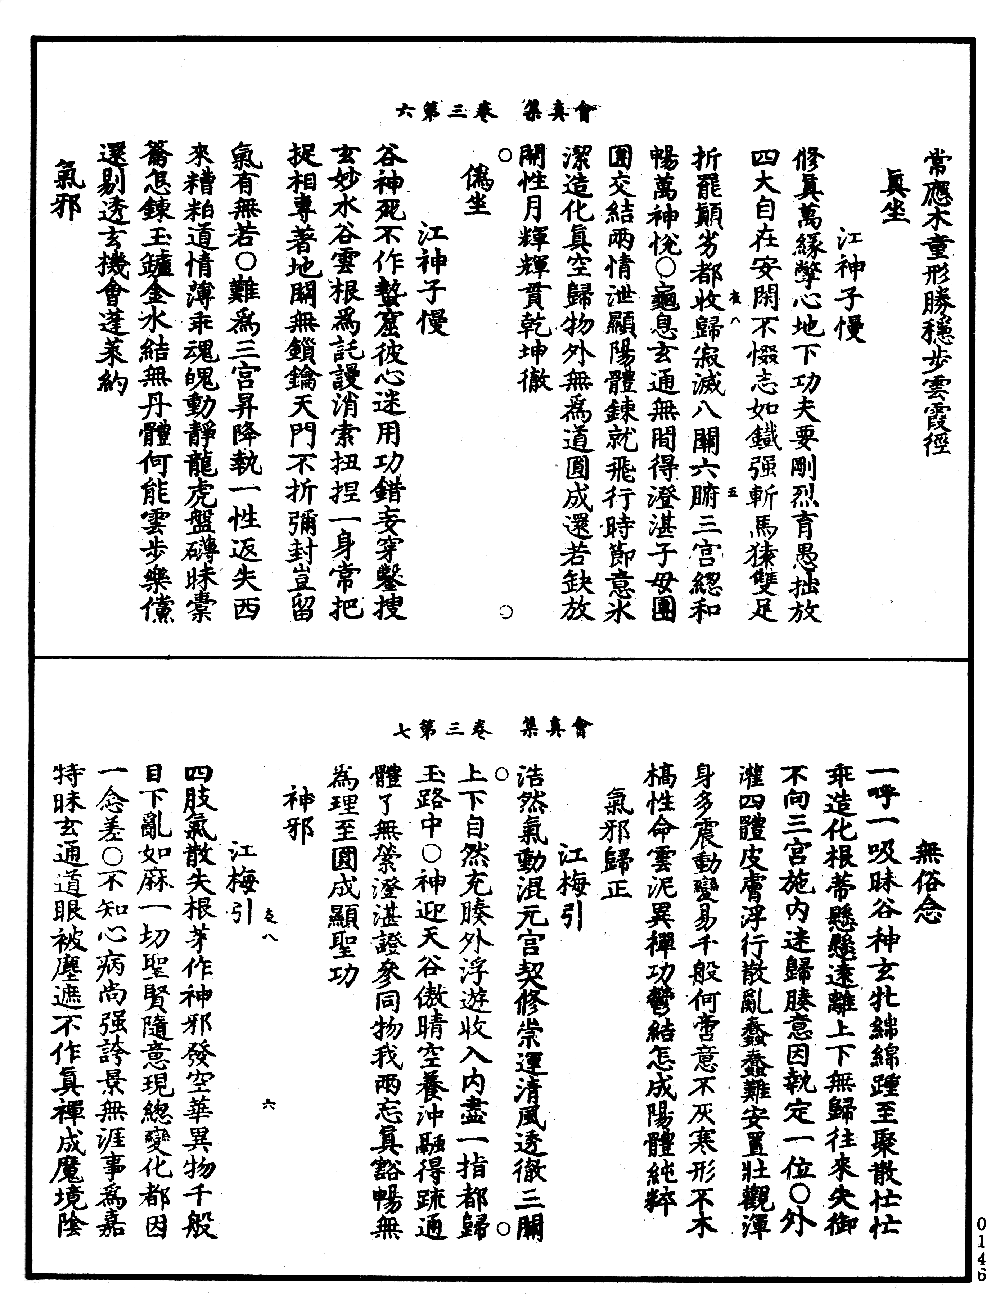 會真集　卷三第六
常應木童形勝穩步雲霞徑
真坐
江神子慢
修真萬緣弊心地下功夫要剛烈育愚拙放
四大自在安閑不惙志如鐵强斬馬猿雙足
折罷顛劣都收歸寂滅八關六腑三宮總和
暢萬神悅〇龜息玄通無間得澄湛子母團
圓交結兩情泄顯陽體鍊就飛行時節意氷
潔造化真空歸物外無為道圓成還若缺放
開性月輝輝貫乾坤徹
偽坐
江神子慢
谷神死不作蟄窟彼心迷用功錯妄穿鑿搜
玄妙水谷雲根為託謾消索扭捏一身常把
捉相專著地關無鎖鑰天門不折彌封豈留
氣有無若〇難為三宮昇降執一性返失西
來糟粕道情薄乖魂魄動靜龍虎盤礴昧橐
籥怎鍊玉鑪金水結無丹體何能雲步樂儻
還剔透玄機會蓬萊約
氣邪
會真集　卷三第七
無俗念
一呼一吸昧谷神玄牝綿綿踵至聚散忙忙
乖造化根蒂懸懸遠離上下無歸往來失御
不向三宮施內迷歸腠意因執定一位〇外
灌四體皮膚浮行散亂蠢蠢難安置壯觀渾
身多震動變易千般何啻意不灰寒形不木
槁性命雲泥異禪功鬱結怎成陽體純粹
氣邪歸正
江梅引
浩然氣動混元宮契修崇運清風透徹三關
上下自然充腠外浮遊收入內盡一指都歸
玉路中〇神迎天谷傲晴空養沖融得疏通
體了無縈澄湛證參同物我兩忘真豁暢無
為理至圓成顯聖功
神邪
江梅引
四肢氣散失根芽作神邪發空華異物千般
目下亂如麻一切聖賢隨意現總變化都因
一念差〇不知心病尚强誇景無涯事為嘉
特昧玄通道眼被塵遮不作真禪成魔境陰
0146